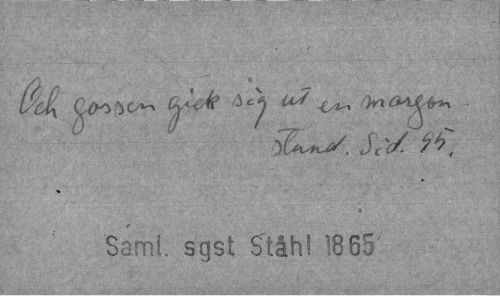 Och gossen gick sig ut en morgon
stund. Sid. 95.
Saml. sgst Ståhl 1865